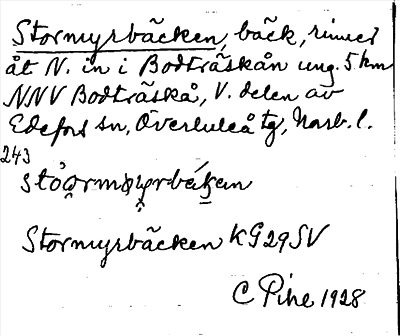 Stormyrbäcken, bäck, rinner
åt N. in i Bodträskån ung. 5 km
NNV Bodträskå, V. delen av
Edefors sn, Överluleå tg, Norrb. l.
243
Stormyrbäcken KG29SV
C Pihe 1928